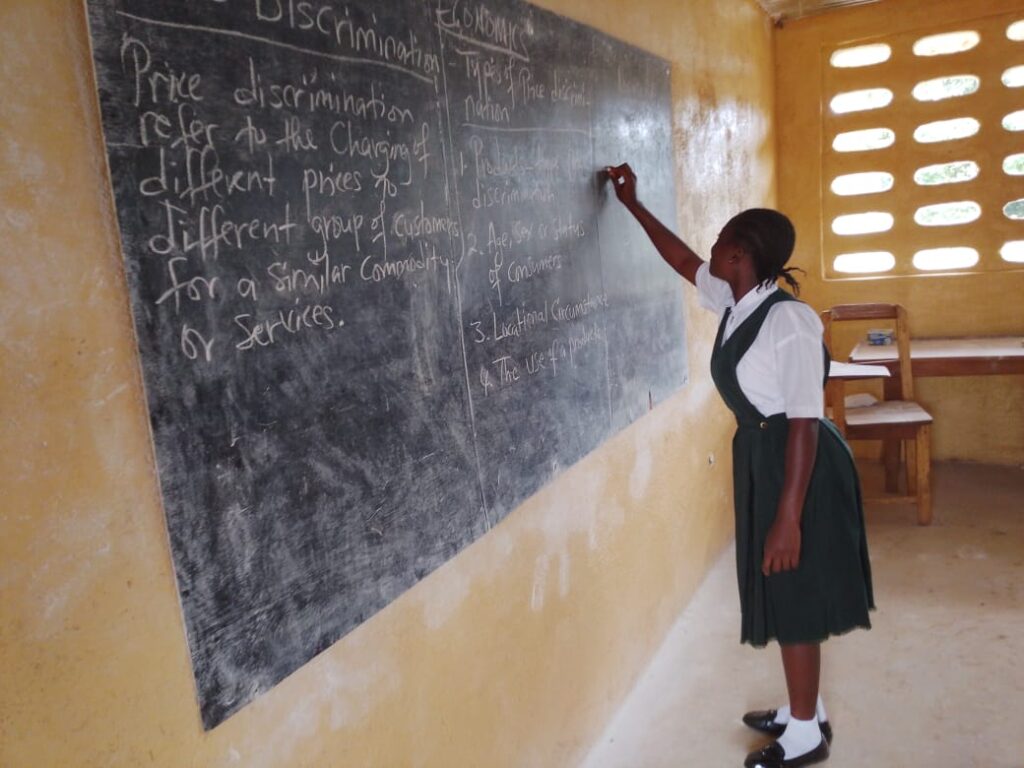 Discrimination
Price discrimination
refer to the Charging of
different prices to
different group of customers
for a similar Commodity
or Services.
ECONOMICS
- Types of Price discrimi-
nation
1.
discrimination
2. Age, Sex or Status
of Consumers
3. Locational Circumstance
4. The use of a product